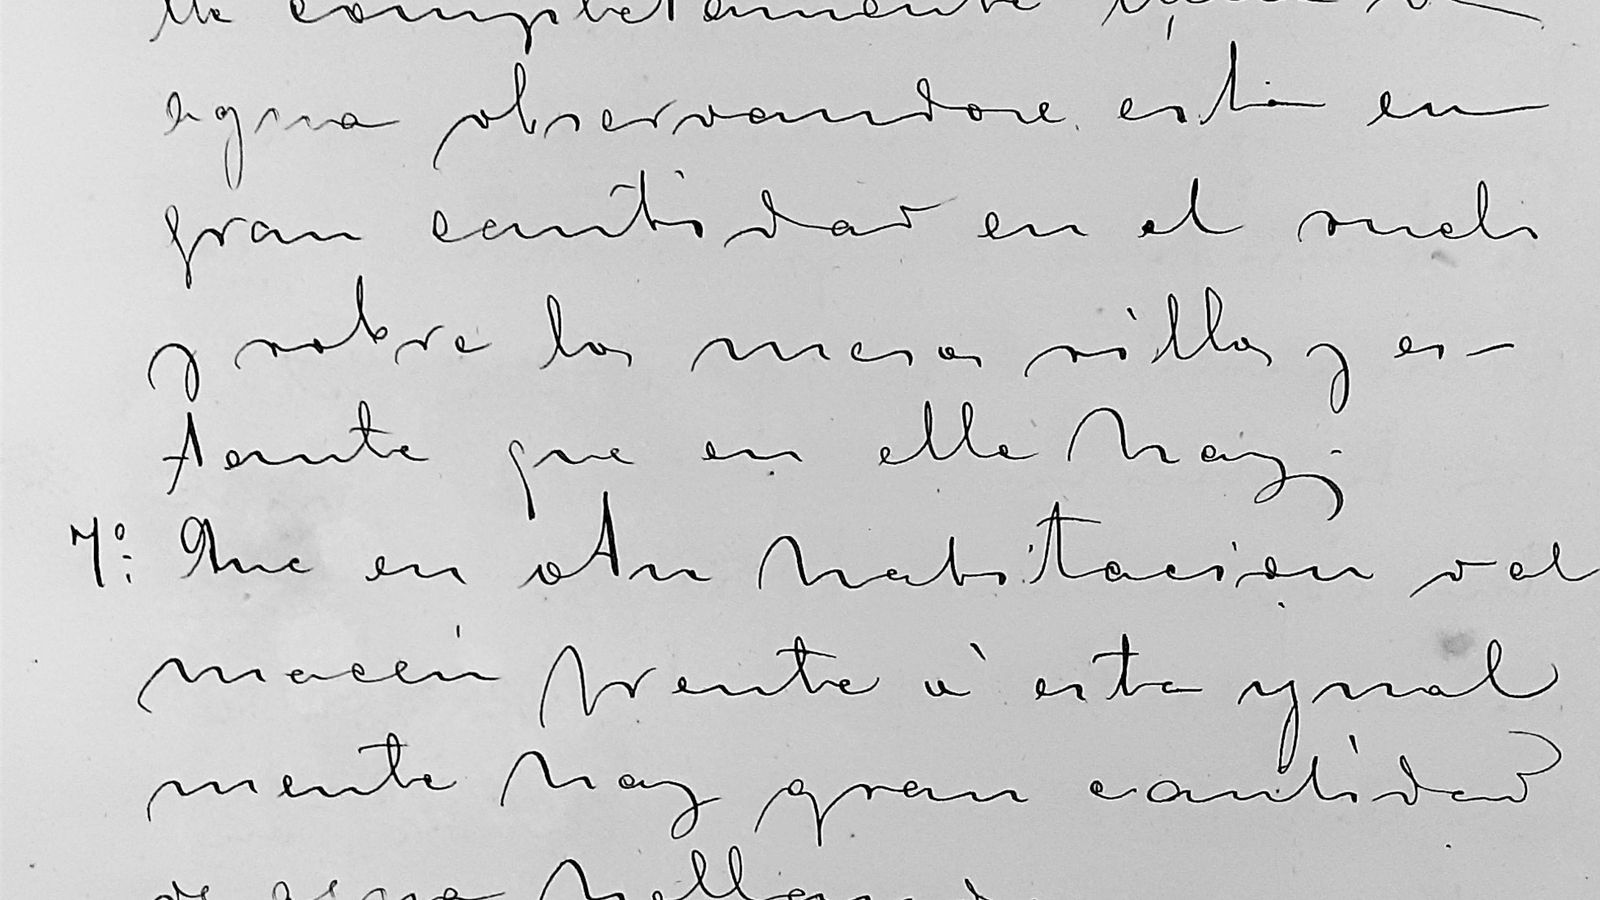 completamente
agua observandose esta en
gran cantidad en el suelo
y sobre las mesas sillas y es-
tante que en ella hay;
7º: Que en otra habitacion o al
macén frente à esta ygual
mente hay gran cantidad
de agua